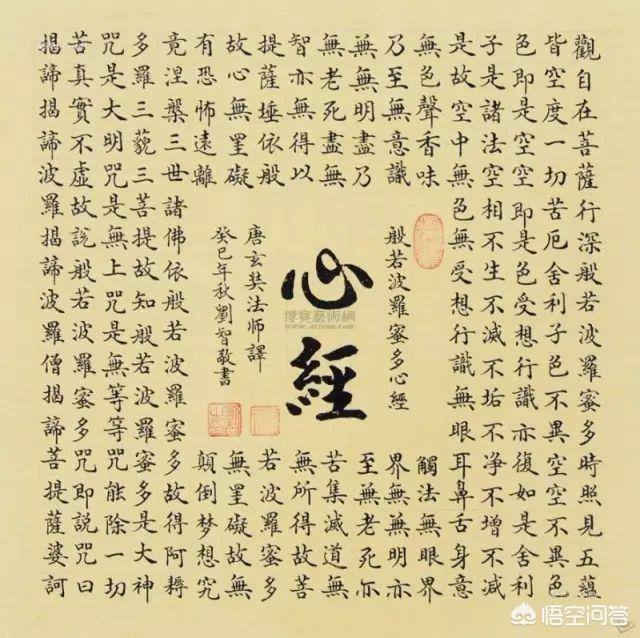 觀自在菩薩行深般若波羅蜜多時照見五蘊
皆空度一切苦厄舍利子色不異空空不異色
色即是空空即是色受想行識亦復如是舍利
子是諸法空相不生不滅不垢不净不增不减
是故空中無色無受想行識無眼耳鼻舌身意
無色聲香味
觸法無眼界
乃至無意識
界無無明亦
無無明盡乃
至無老死亦
無老死盡無
苦集滅道無
智亦無得以
無所得故菩
提薩埵依般
若波羅蜜多
故心無罣礙
無罣礙故無
有恐怖遠離
顛倒梦想究
竟涅槃三世諸佛依般若波羅蜜多故得阿耨
多羅三藐三菩提故知般若波羅蜜多是大神
咒是大明咒是無上咒是無等等咒能除一切
苦真實不虛故說般若波羅蜜多咒即説咒曰
揭諦揭諦波羅揭諦波羅僧揭諦菩提薩婆訶
般若波羅蜜多心經
心經
唐玄奘法师譯
癸巳年秋劉智敬書
博寶藝術網
悟空问答